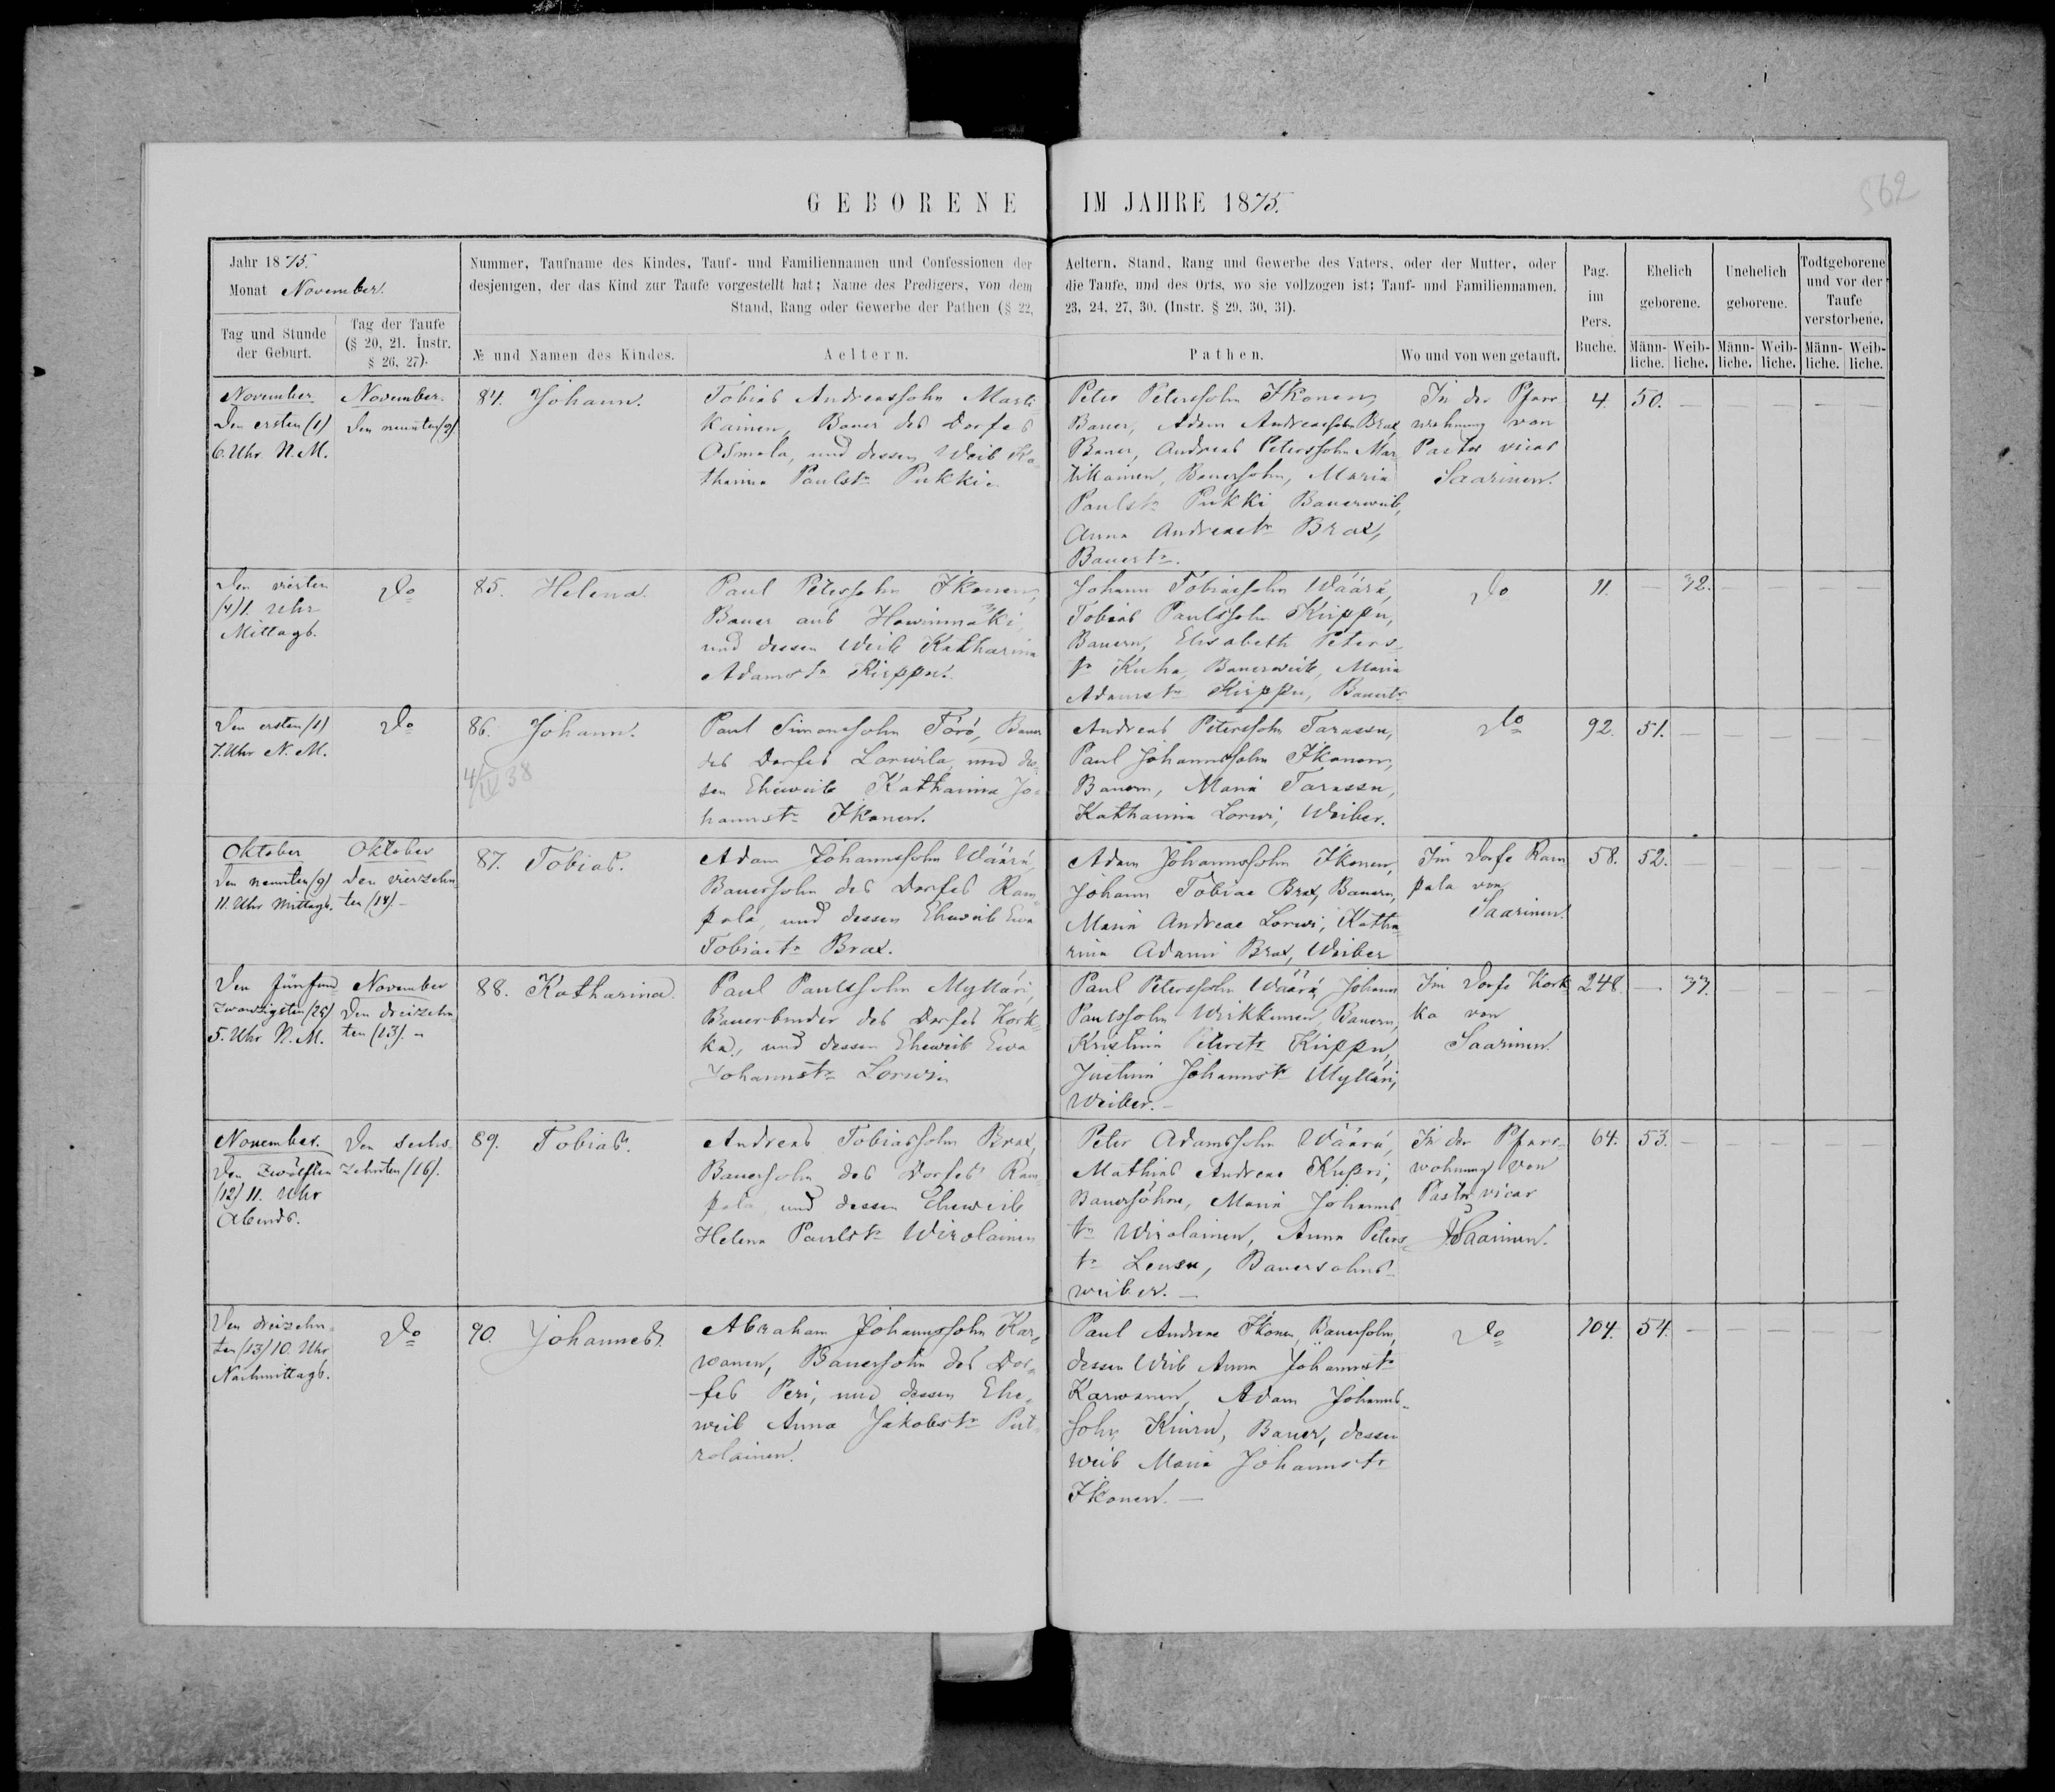 562
GEBORENE IM JAHRE 1875.
Jahr 1875.
Monat November.
Nummer, Taufname des Kindes, Tauf- und Familiennamen und Confessionen der
desjenigen, der das Kind zur Taufe vorgestellt hat; Name des Predigers, von dem
Stand, Rang oder Gewerbe der Pathen (§ 22,
Aeltern, Stand, Rang und Gewerbe des Vaters, oder der Mutter, oder
die Taufe, und des Orts, wo sie vollzogen ist; Tauf- und Familiennamen,
23, 24, 27, 30. (Instr. § 29, 30, 31).
Pag.
im
Pers.
Buche.
Ehelich
geborene.
Unehelich
geborene.
Todtgeborene
und vor der
Taufe
verstorbene.
Tag und Stunde
der Geburt.
Tag der Taufe
(§ 20, 21. Instr.
§ 26, 27).
№ und Namen des Kindes.
Aeltern.
Pathen.
Wo und von wen getauft.
Männ-
liche.
Weib-
liche.
Männ-
liche.
Weib-
liche.
Männ-
liche.
Weib-
liche.
November
Den ersten (1)
6. Uhr N. M.
November.
Den neunten (9)
84. Johann.
Tobias Andreassohn Marti-
kainen, Bauer des Dorfes
Osmala, und dessen Weib Ka-
tharina Paulstr Pukki.
Peter Peterssohn Ikonen,
Bauer, Adam Andreassohn Brax,
Bauer, Andreas Peterssohn Mar-
tikainen, Bauersohn, Maria
Paulstr Pukki Bauerweib,
Anna Andreastr Brax,
Bauertr.
In der Pfarr
wohnung von
Pastor vicar
Saarinen.
4. 50. — — — — —
Den vierten
(4) 1. Uhr
Mittags.
Do
85. Helena.
Paul Peterssohn Ikonen,
Bauer aus Howinmäki,
und dessen Weib Katharina
Adamstr Kirppu.
Johann Tobiassohn Wäärä,
Tobias Paulssohn Kirppu,
Bauern, Elisabeth Peters-
tr Kuha, Bauerweib, Maria
Adamstr Kirppu, Bauertr
Do
11. — 32. — — — —
Den ersten (1)
7. Uhr N. M.
Do
86. Johann.
4/IV 38
Paul Simonssohn Törö, Bauer
des Dorfes Lorwila, und des-
sen Eheweib Katharina Jo-
hannstr Ikonen.
Andreas Peterssohn Tarassu,
Paul Johannssohn Ikonen,
Bauern, Maria Tarassu,
Katharina Lorwi, Weiber.
Do
92. 51. — — — — —
Oktober
Den neunten (9)
11. Uhr Mittags.
Oktober
Den vierzehn
ten (14) —
87. Tobias.
Adam Johannssohn Wäärä,
Bauersohn des Dorfes Ram-
pala, und dessen Eheweib Ewa
Tobiastr Brax.
Adam Johannssohn Ikonen,
Johann Tobiae Brax, Bauern,
Maria Andreae Lorwi, Katha-
rina Adami Brax, Weiber
Im Dorfe Ram
pala von
Saarinen.
58. 52. — — — — —
Den fünfund
zwanzigsten (25)
5. Uhr N. M.
November
Den dreizehn
ten (13). —
88. Katharina.
Paul Paulssohn Mylläri,
des Dorfes Kork-
ka, und dessen Eheweib Ewa
Johannstr Lorwi.
Paul Peterssohn Wäärä, Johann
Paulssohn Wirkkunen, Bauern,
Kristina Peterstr Kirppu,
Justina Johannstr Mylläri,
Weiber. —
Im Dorfe Kork
ka von
Saarinen.
248. — 33. — — — —
November.
Den zwölften
(12) 11. Uhr
Abends.
Den sechs-
zehnten (16).
89. Tobias.
Andreas Tobiassohn Brax,
Bauersohn des Dorfes Ram-
pala, und dessen Eheweib
Helena Paulstr Wirolainen
Peter Adamssohn Wäärä,
Mathias Andreae
Bauersöhne, Maria Johanns
tr Wirolainen, Anna Peters-
tr Bauersohns-
weiber. —
In der Pfarr-
wohnung von
Pastor vicar
Saarinen.
64. 53. — — — — —
Den dreizehn
ten (13) 10. Uhr
Nachmittags.
Do
90. Johannes.
Abraham Johannssohn Kar-
wanen, Bauersohn des Dor-
fes Peri, und dessen Ehe-
weib Anna Jakobstr Put-
rolainen.
Paul Andreae Ikonen, Bauersohn,
dessen Weib Anna Johannstr
Karwanen, Adam Johanns-
sohn Kiuru, Bauer, dessen
Weib Maria Johannstr
Ikonen. —
Do
104. 54. — — — — —